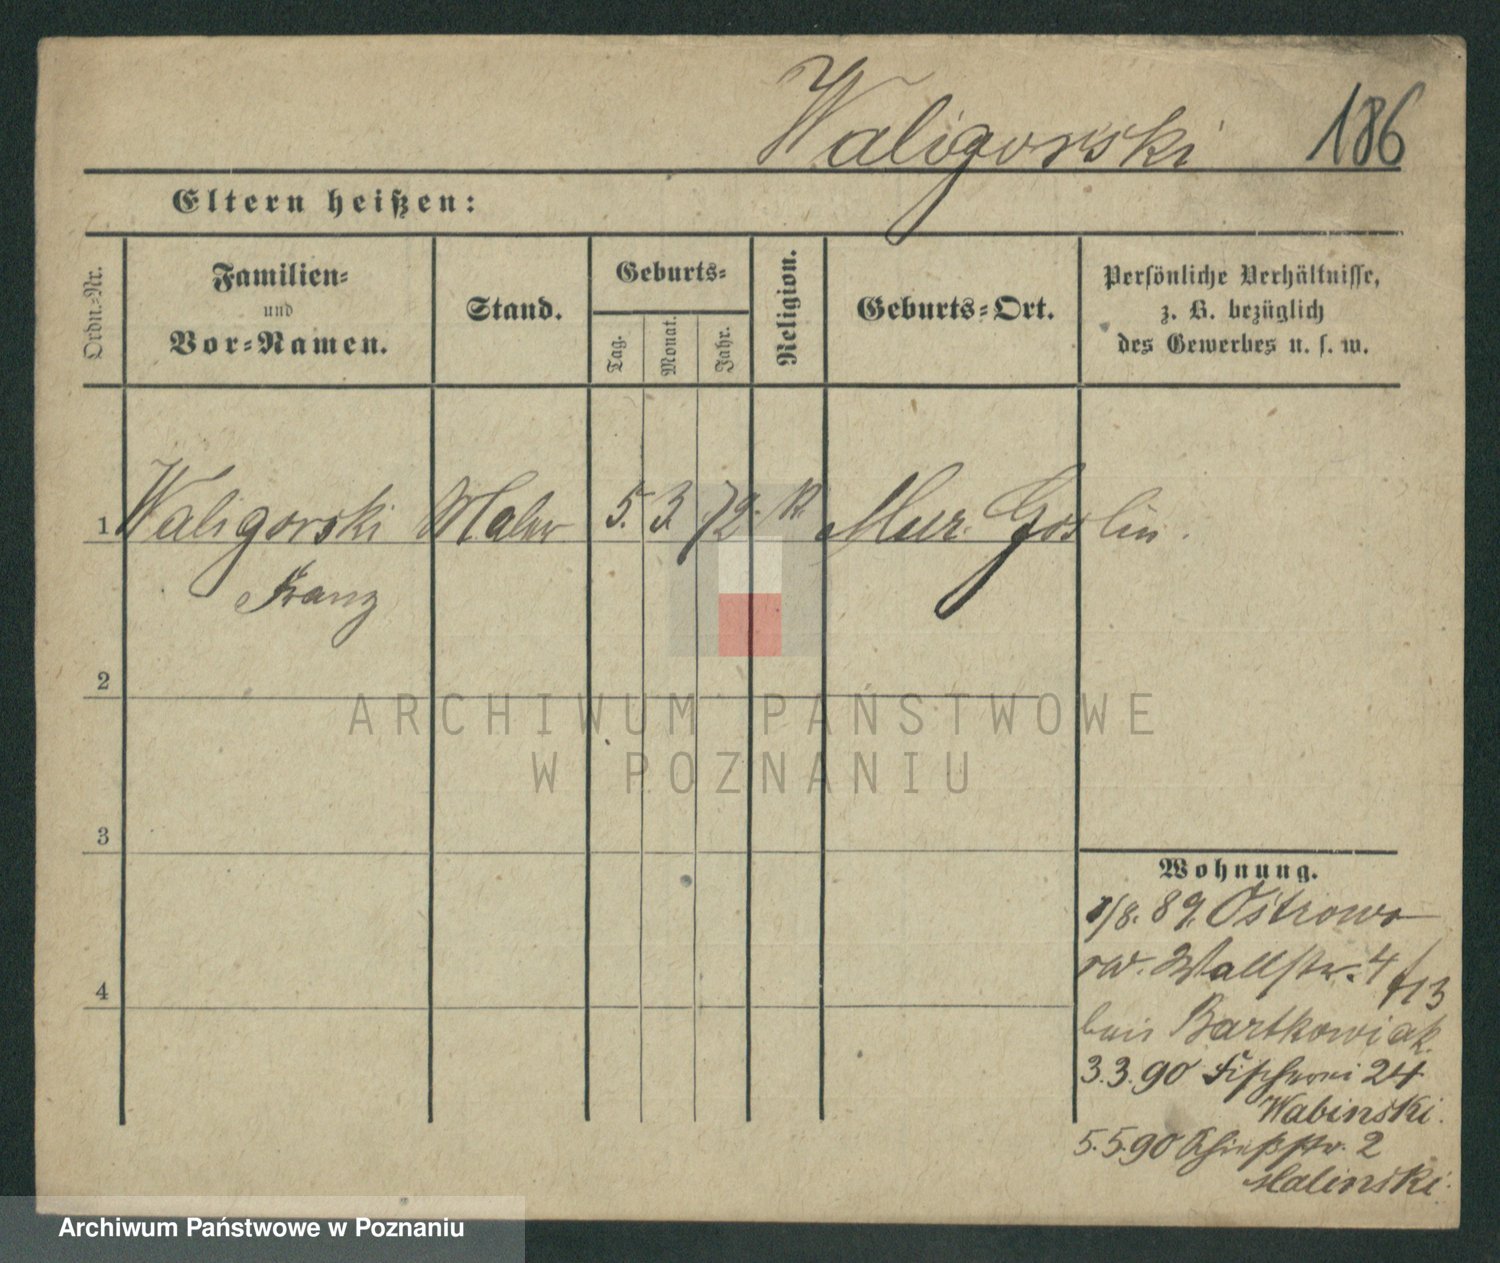 Waligorski 186
Eltern heißen:
Ordn.-Nr.
Familien-
und
Vor-Namen.
Stand.
Geburts-
Tag.
Monat.
Jahr.
Religion.
Geburts-Ort.
Persönliche Verhältnisse,
z. B. bezüglich
des Gewerbes u. s. w.
1 Waligorski Maler 5. 3. 72. k. Mur. Goslin.
Franz
2
ARCHIWUM PAŃSTWOWE
W POZNANIU
3
Wohnung.
1/8. 89. Ostrowo
Wallstr. 4/13
bei Bartkowiak.
4
3.3.90 Fischerei 24
Wabinski.
5.5.90 Schießstr. 2
Malinski.
Archiwum Państwowe w Poznaniu